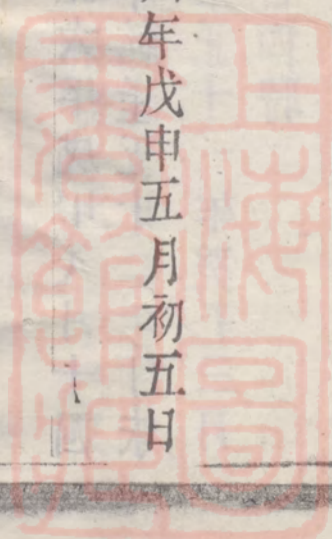 年戊申五月初五日
上海圖
書館藏